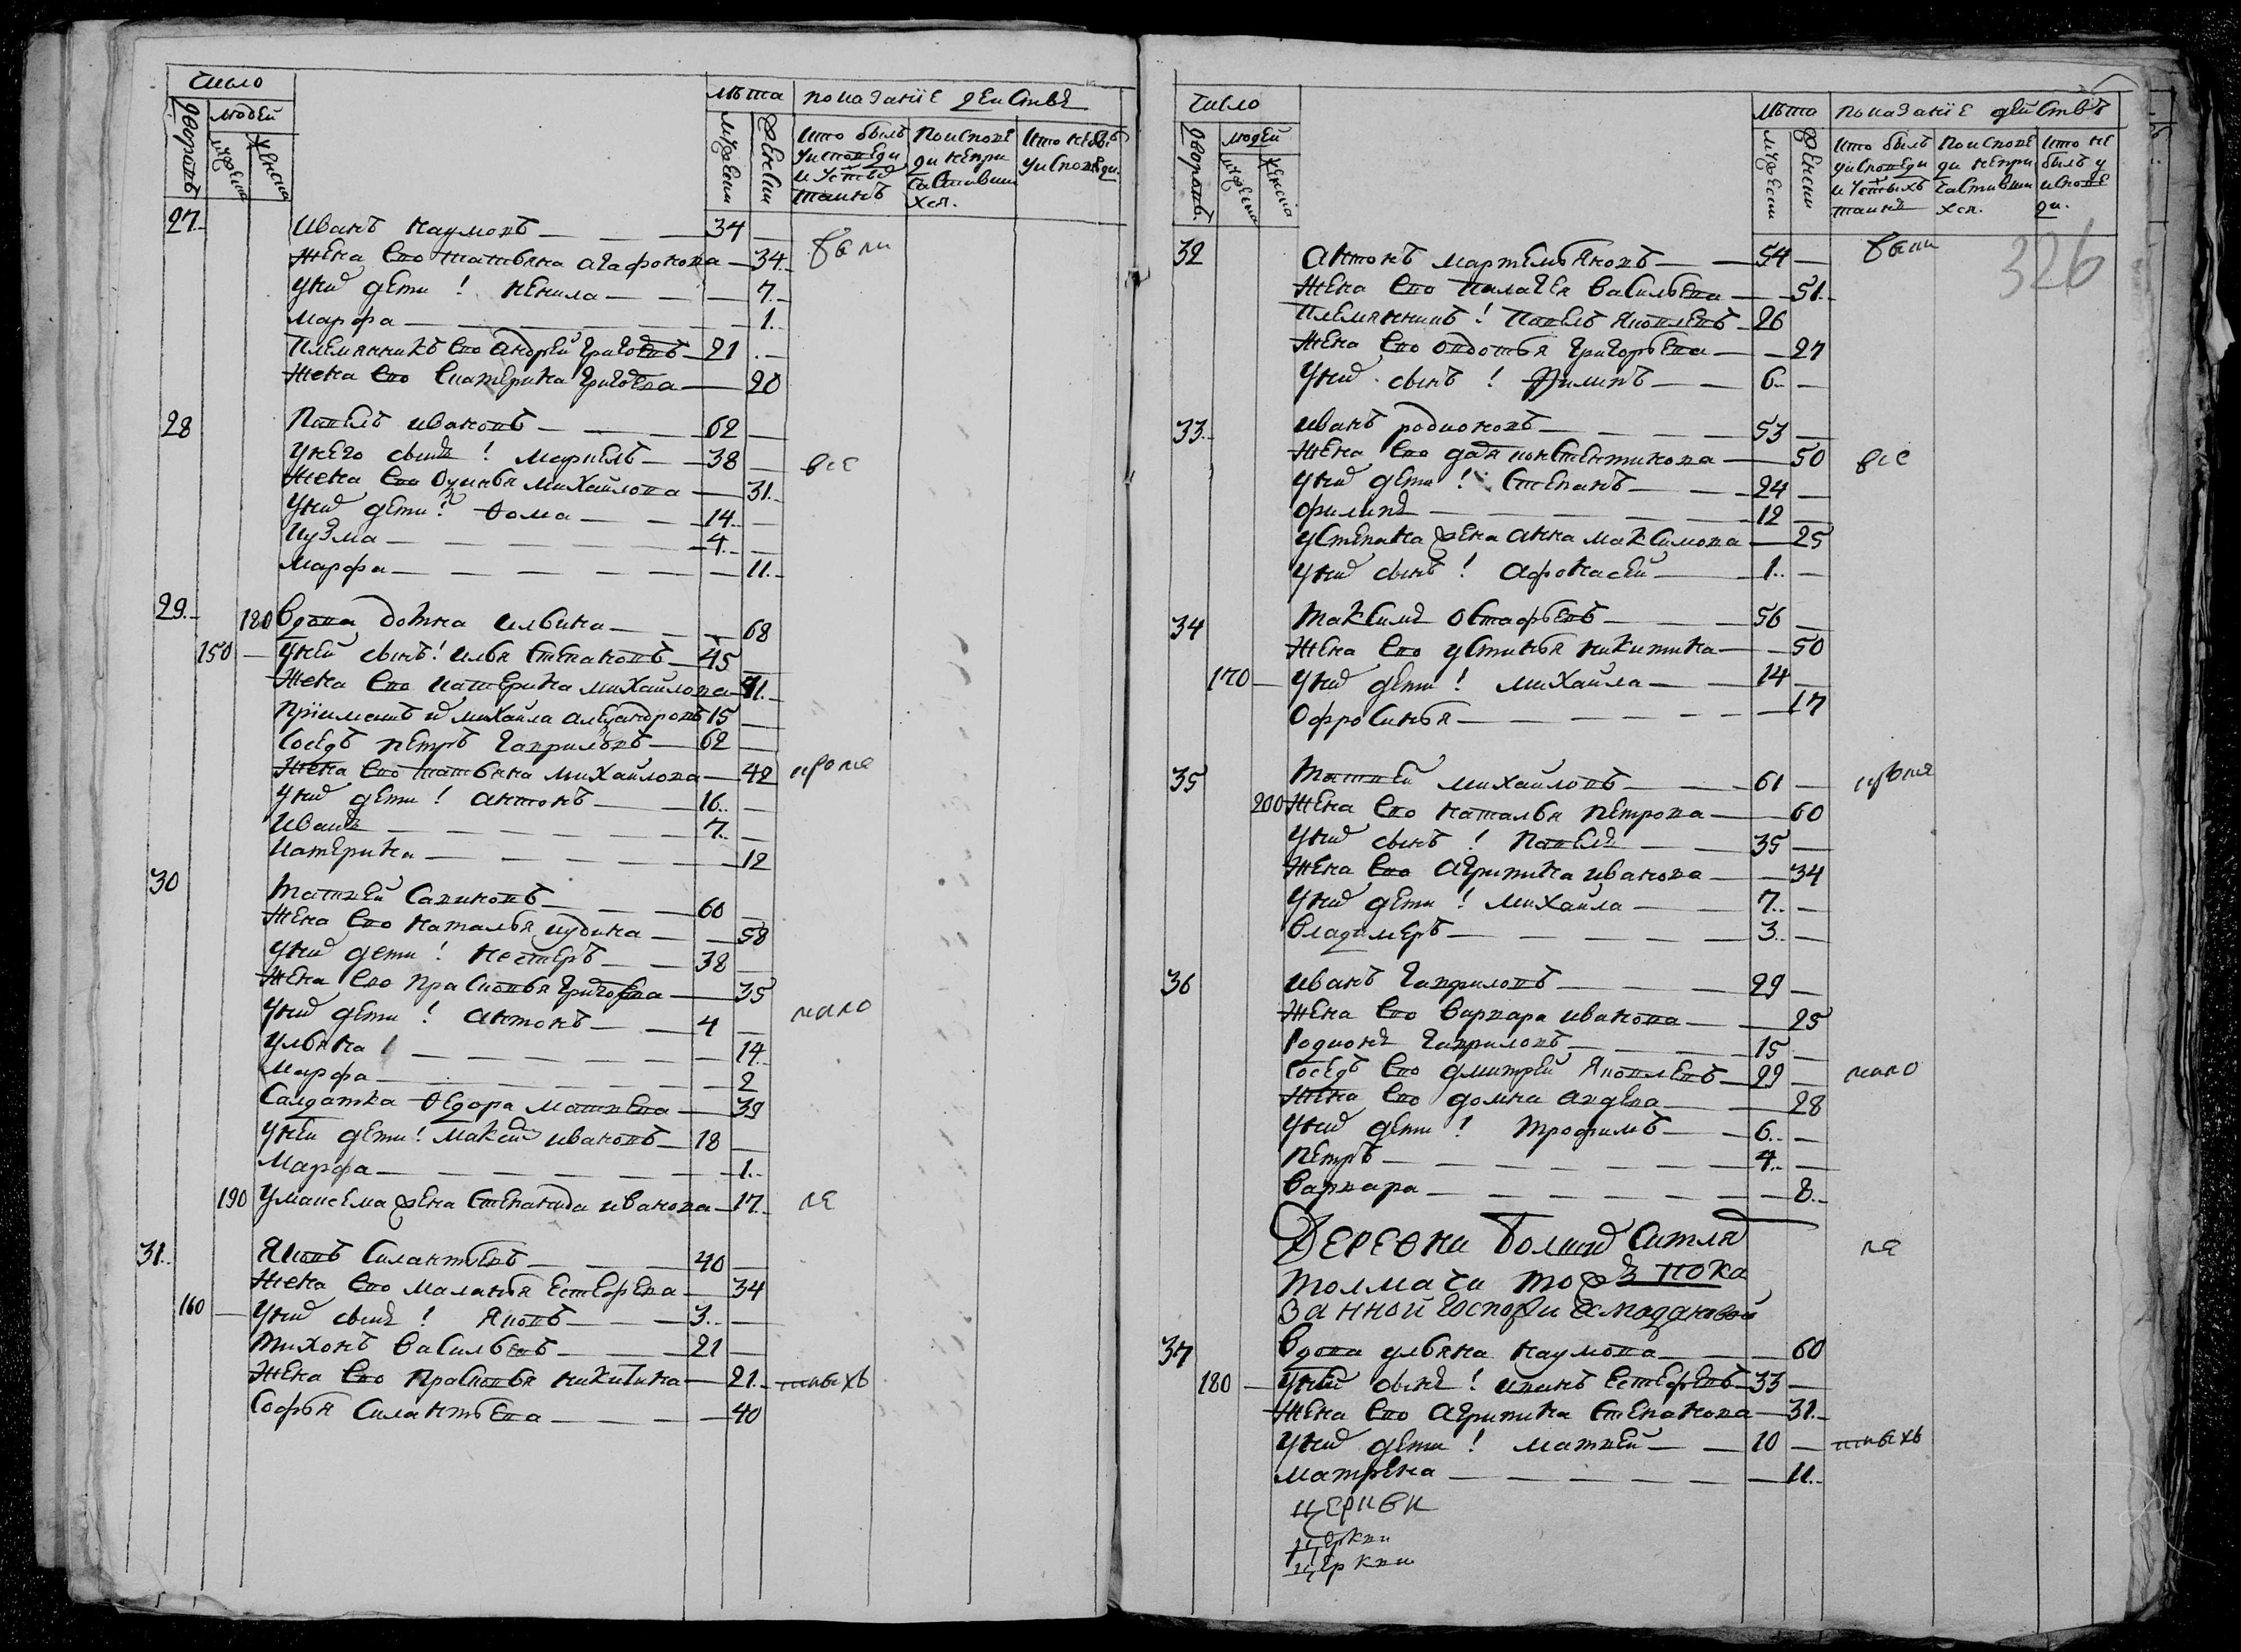 число
дворовъ
людей
мужеска
женска
лѣта
мужеска
женски
показанїе действъ
кто былъ
уисповеди
и уствых
таинъ
поиспове
ди непри
частивши
хся.
кто небыл
уисповеди
27 Иванъ наумовъ 34 были
жена ево татьяна агафонова 34
уних дети ! ненила 7
марфа 1
племянникъ ево андрей григоревъ 21
жена ево екатерина григорева 20
28 Павелъ ивановъ 62
унего сынъ ! маркелъ 38 все
жена ево михайлова 31
уних дети ! Фома 14
кузма 4
марфа 11
29 120 вдова домна илвина 68
150 уней сынъ ! илья степановъ 45
жена ево катерина михайлова 41
михайла александровъ 15
соседъ петръ гаврилевъ 62
жена ево татьяна михайлова 42 кроме
уних дети ! антонъ 16
Иванъ 7
катерина 12
30 матвей савиновъ 60
жена ево наталья июдина 58
уних дети ! нестеръ 38
жена ево прасковья григорева 35
уних дети ! антонъ 4 мало
ульяна ! 14
марфа 2
салдатка Федора матвева 39
уней дети ! максим ивановъ 18
марфа 1
190 умаксема жена степанида иванова 17 ле
31 Яковъ силантьевъ 40
жена ево маланья естефева 34
160 уних сынъ ! яковъ 3
тихонъ васильевъ 21
жена ево прасковья никитина 21 тныхъ
софья силантьева 40
число
дворовъ.
людей
мужеска
женска
лѣта
мужески
женски
показанїе действъ
кто былъ
уисповеди
и уствыхъ
таинъ
поиспове
ди непри
частивши
хся.
кто не
былъ у
испове
ди.
326
32 антонъ мартемьяновъ 54 были
жена ево палагея васильева 51
племянникъ ! павелъ яковлевъ 26
жена ево овдотья григорьева 27
уних сынъ ! Филипъ 6
33 иванъ родионовъ 53
жена ево дая констентинова 50 все
уних дети ! степанъ 24
филипъ 12
устепана жена анна максимова 25
уних сынъ ! афонасей 1
34 максимъ остафьевъ 56
жена ево устинья никитина 50
170 уних дети ! михайла 14
офросинья 17
35 матвей михайловъ 61 кроме
200 жена ево наталья петрова 60
уних сынъ ! павелъ 35
жена ево агрипина иванова 34
уних дети ! михайла 7
владимеръ 3
36 иванъ гавриловъ 29
жена ево варвара иванова 25
родионъ гавриловъ 15
соседъ ево дмитрей яковлевъ 29 мало
жена ево домна авдева 28
уних дети ! трофимъ 6
петръ 4
варвара 8
ле
толмачи
37 вдова ульяна наумова 60
180 уней сынъ ! иванъ естефевъ 33
жена ево агрипина степанова 31
уних дети ! матвей 10 тныхъ
матрена 11
церкви
церкви
церкви